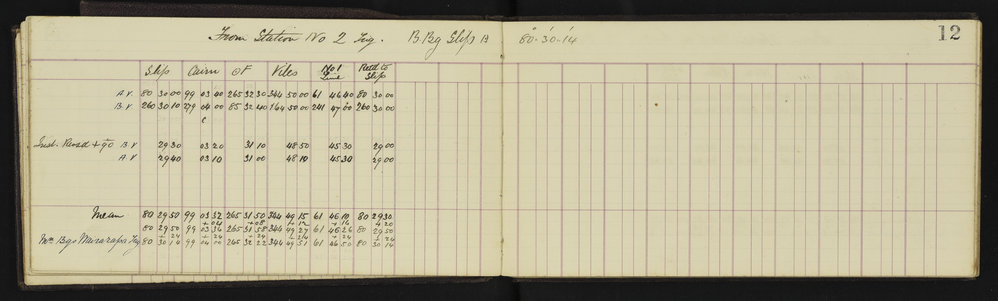 From Station No 2 Trig. B. Brg Slip B 80°-30'-14 12
Slip Cairn OF Villes No 1 Line Retd to Slip
A.V 80 30 00 99 03 40 265 32 30 344 50 00 61 46 40 80 30 00
B.V 260 30 10 279 04 00 85 32 40 164 50 00 241 47 00 260 30 00
c
Inst. Revsd + 90 B.V 29 30 03 20 31 10 48 50 45 30 29 00
A.V 29 40 03 10 31 00 48 10 45 30 29 00
Mean 80 29 50 99 03 32 265 31 50 344 49 15 61 46 10 80 29 30
+ 04 + 08 + 12 + 16 + 20
80 29 50 99 03 36 265 31 58 344 49 27 61 46 26 80 29 50
+ 24 + 24 + 24 + 24 + 24 + 24
Mn Brgs Wairarapa Trig 80 30 14 99 04 00 265 32 22 344 49 51 61 46 50 80 30 14